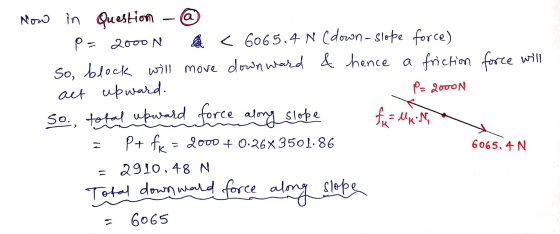 Now in Question - (a)
P = 2000 N < 6065.4 N (down-slope force)
So, block will move downward & hence a friction force will
act upward.
So, total upward force along slope
= P + fK = 2000 + 0.26 × 3501.86
= 2910.48 N
Total downward force along slope
= 6065
P = 2000N
fK = μK.N1
6065.4 N